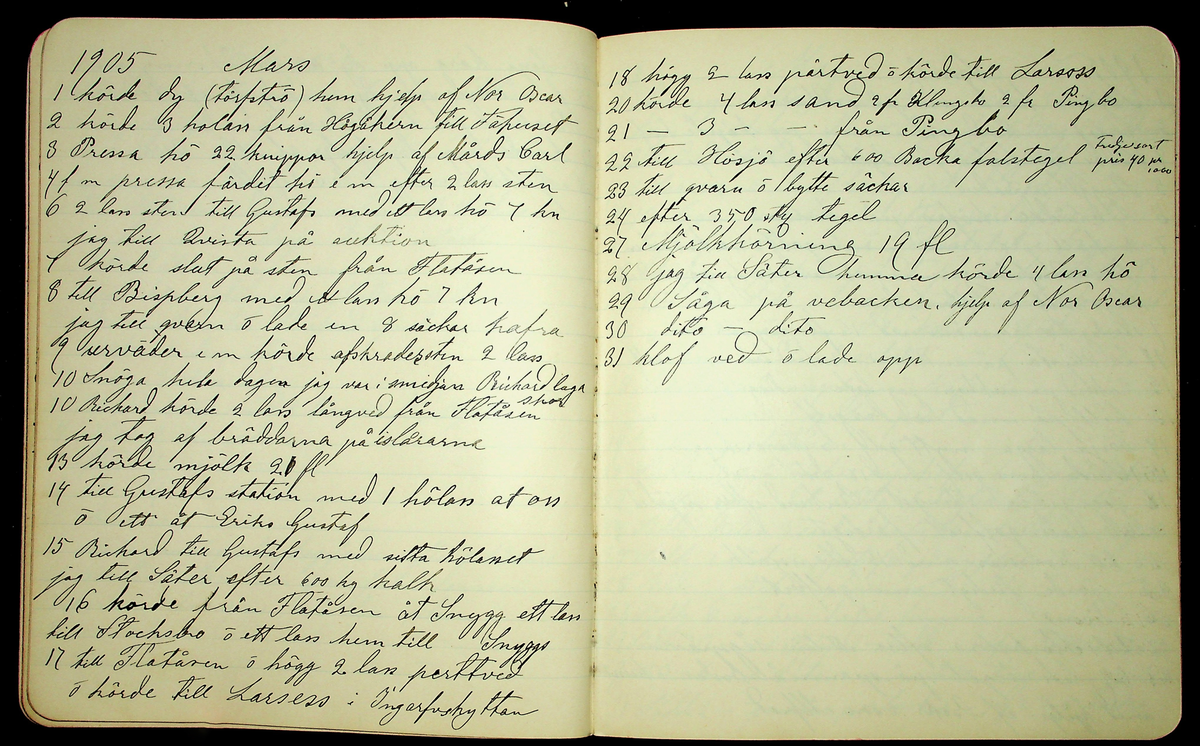 1905 Mars
1 körde dy (törfströ) hem hjelp af Nor Oscar
2 körde 3 hölass från Högåkern till Täpuset
3 Pressa hö 22 knippor hjelp af Mårds Carl
4 f m pressa färdit hö e m efter 2 lass sten
6 2 lass sten till Gustafs med ett lass hö 7 kn
jag till Qvista på auktion
7 körde slut på sten från Flatåsen
8 till Bispberg med ett lass hö 7 kn
jag till qvarn ö lade en 8 säckar hafra
9 urväder e m körde afskrädersten 2 lass
10 Snöga hela dagen jag var i smidjan Richard laga
skor
10 Richard körde 2 lass långved från Flatåsen
jag tog af bräddarna på islararna
13 körde mjölk 21 fl
14 till Gustafs station med 1 hölass at oss
ö ett åt Eriks Gustaf
15 Richard till Gustafs med sista hölasset
jag till Säter efter 600 kg kalk
16 körde från Flatåsen åt Snygg ett lass
till Stocksbo ö ett lass hem till Snyggs
17 till Flatåsen ö högg 2 lass perttved
ö körde till Larsess i Ingarfvshyttan
18 högg 2 lass pärtved ö körde till Larsoss
20 körde 4 lass sand 2 fr Klingsbo 2 fr Pingbo
21 — 3 — — från Pingbo
22 till Hösjö efter 600 Backa falstegel
pris 40 pr
1000
23 till qvarn ö bytte säckar
24 efter 350 sty tegel
27 Mjölkkörning 19 fl
28 jag till Säter hemma körde 4 lass hö
29 Såga på vebacken. hjelp af Nor Oscar
30 dito — dito
31 klof ved ö lade opp